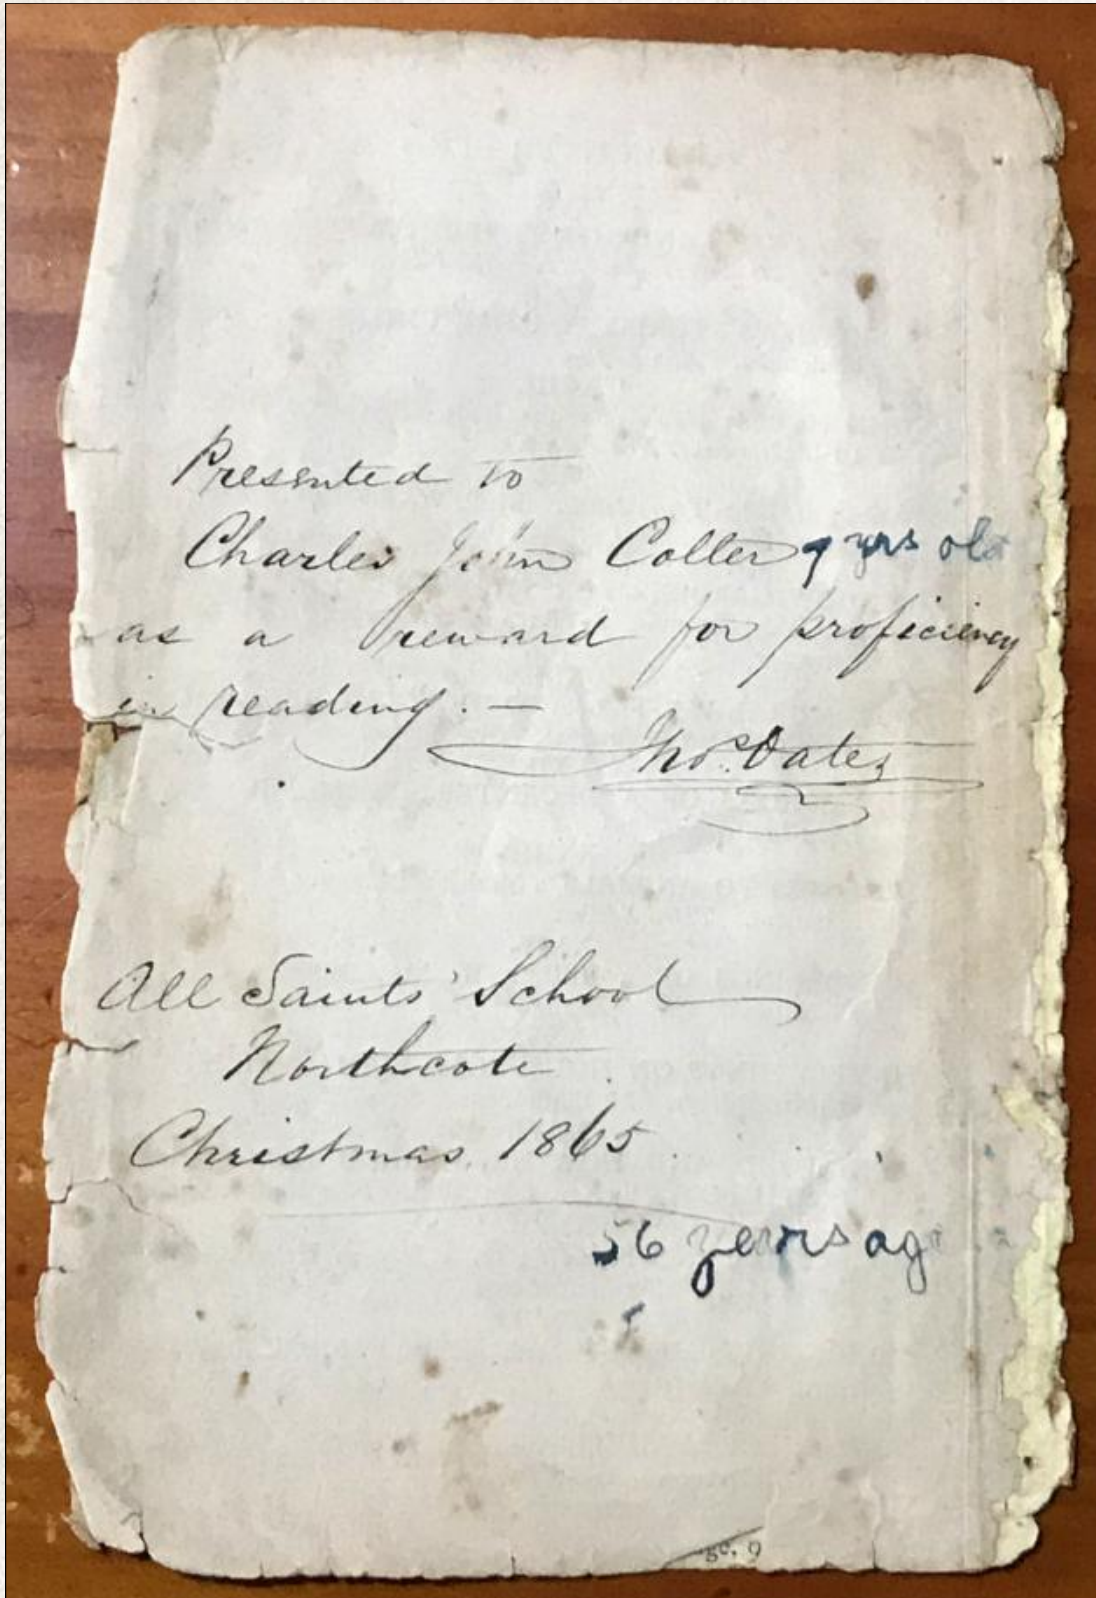 Presented to
Charles John Colter 9 yrs old
as a reward for proficiency
in reading. —
Thos. Oates
All Saints' School
Northcote
Christmas 1865
56 years ago